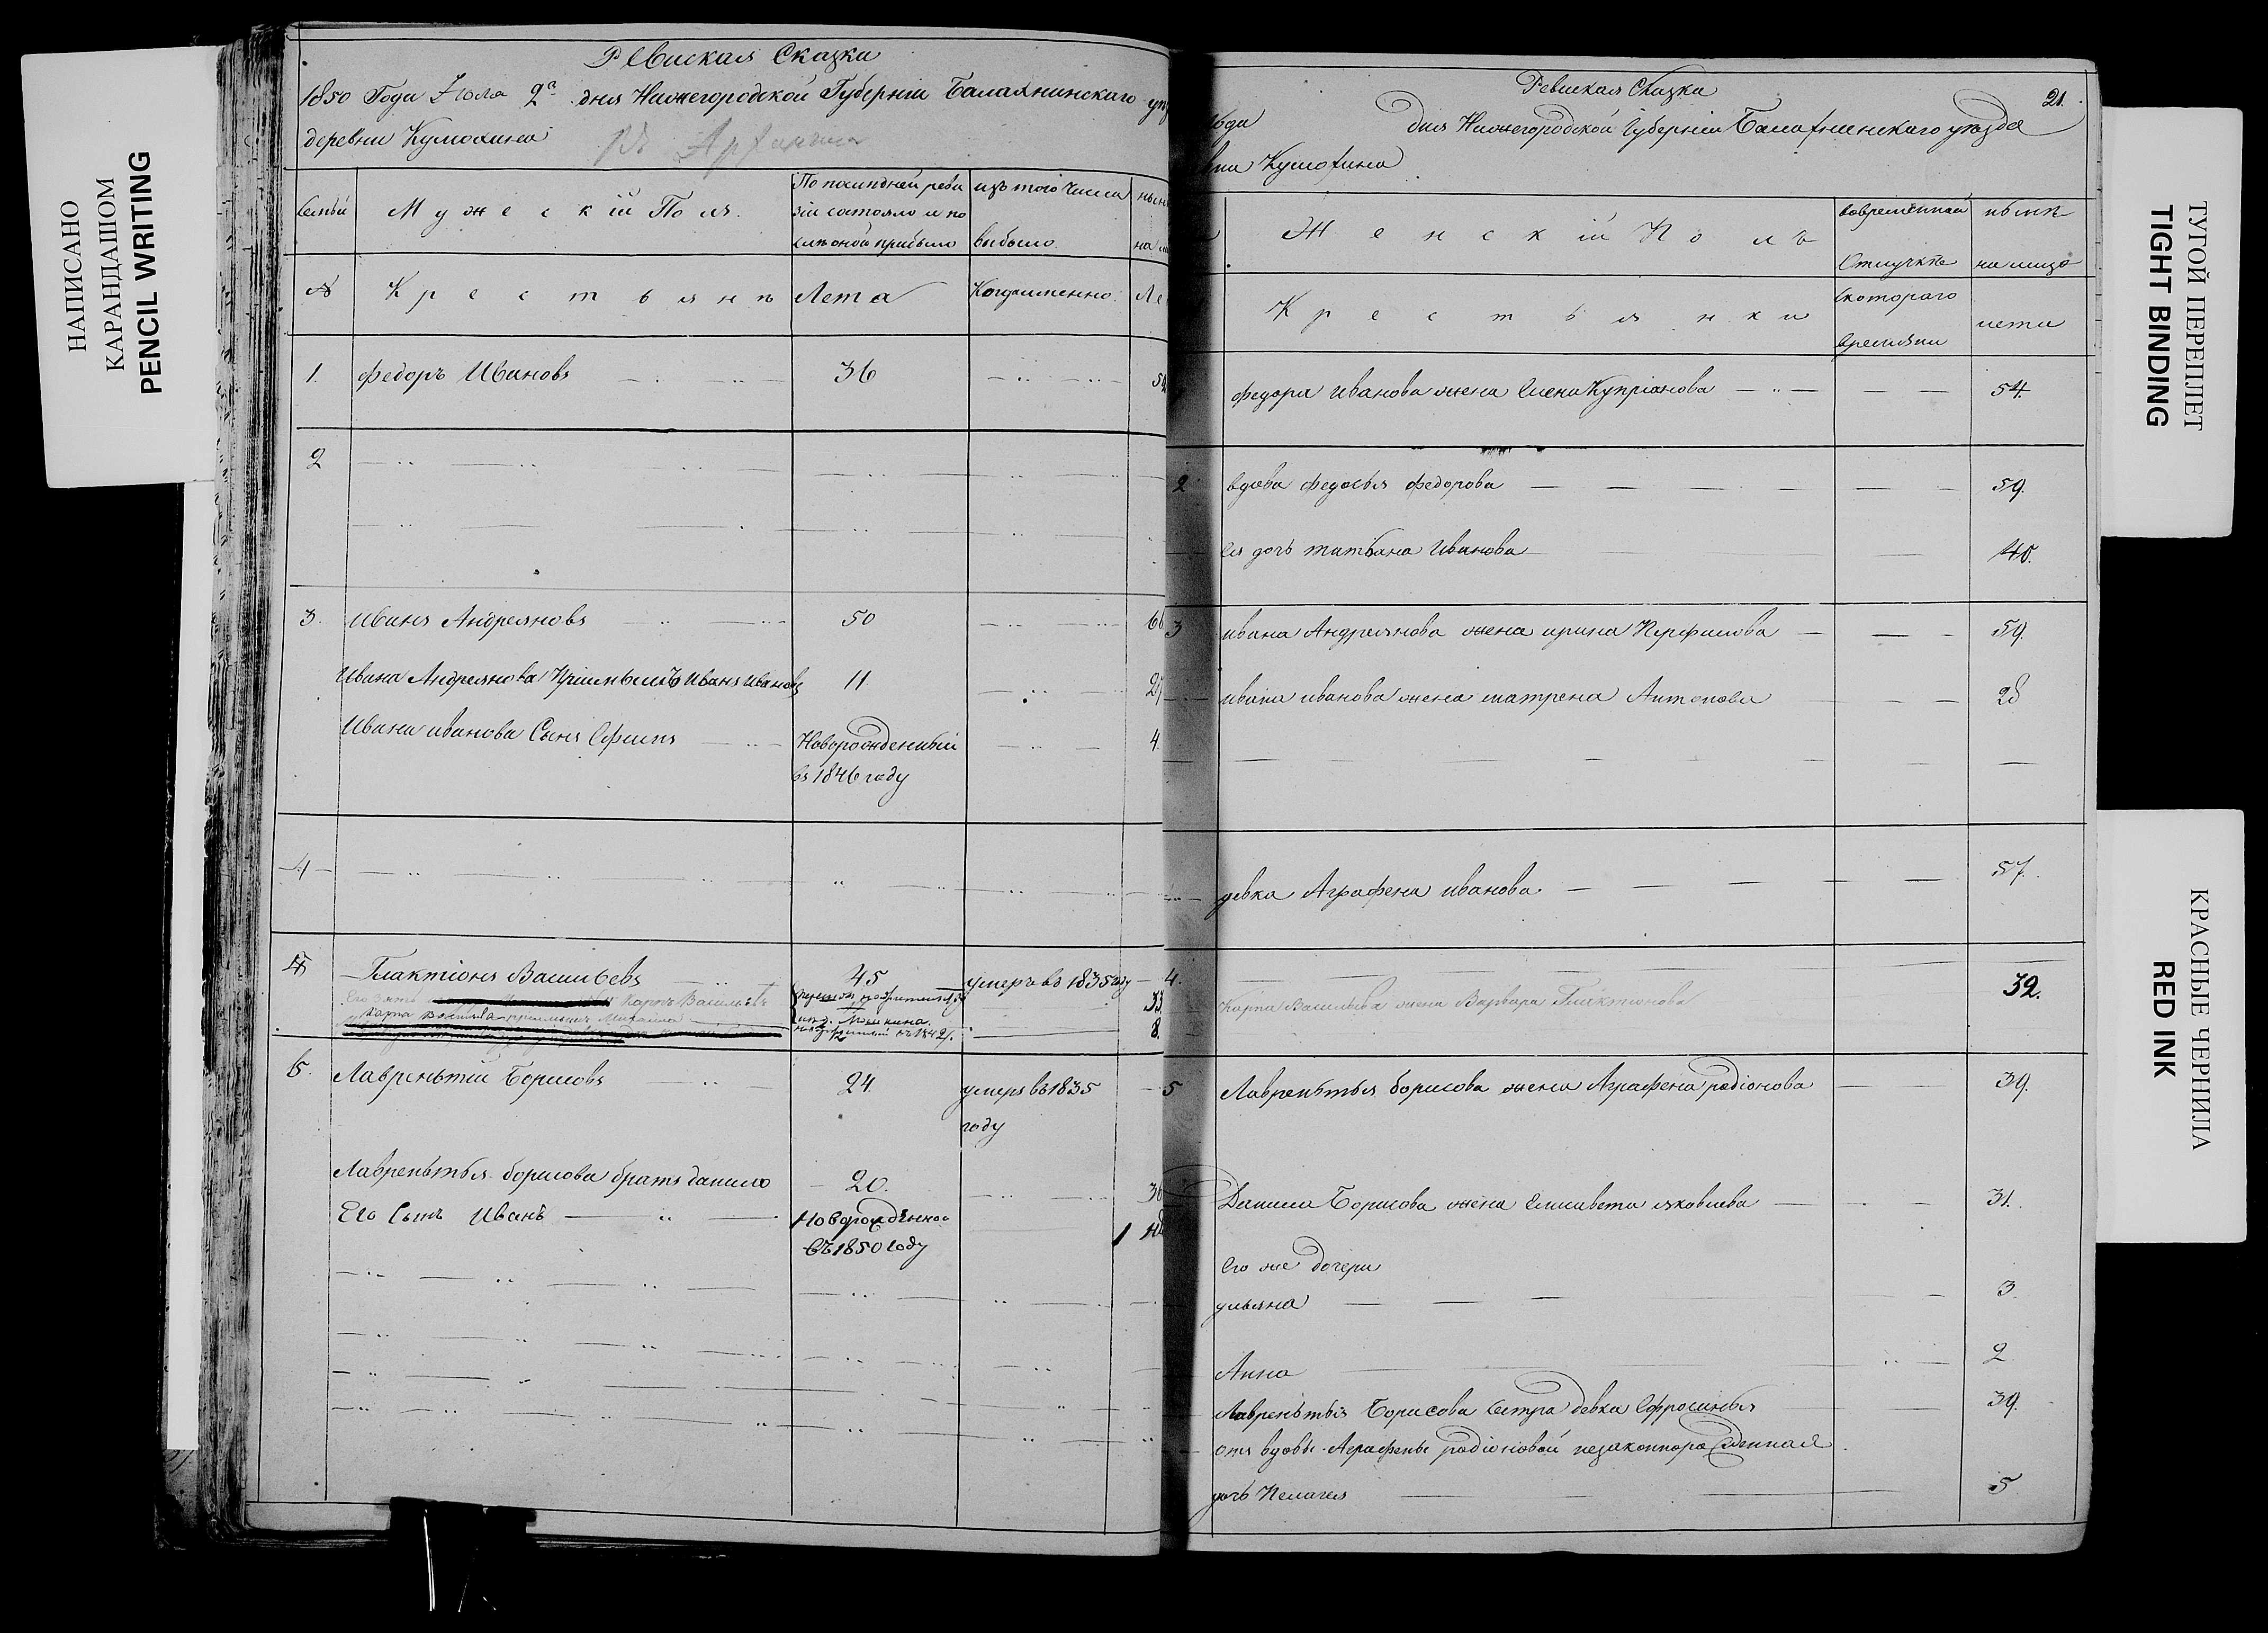 НАПИСАНО
КАРАНДАШОМ
PENCIL WRITING
Ревиская Сказка
1850 Года Июля 2го дня Нижегородской Губерніи Балахнинскаго
деревни Кумохина
Семьи
Мужескій Пол
По последней реви
зіи состояло и по
сле оной прибыло
изъ того числа
выбыло
№
Крестьянъ
Лета
Когда именно
1. Федоръ Ивановъ 36 54
2
3. Иванъ Андреяновъ 50 66
Ивана Андреянова Пріимышъ Иванъ Ивановъ 11 27
Ивана иванова Сынъ Ефимъ Новорожденный 4
въ 1846 году
4
Галактіонъ Васильевъ 45 умеръ въ 1835 году 4.
Карпъ Васильевъ 33
Карпа Васильева Михаила 8
Лавреньтій Борисовъ 24 умеръ въ 1835
году
Лавреньтья борисова братъ данило 20.
Его Сынъ Иванъ Новорожденной
въ 1850 году
Ревиская Сказка
21.
года дня Нижегородской Губерніи Балахнинскаго уезда
Кумохина
Женскій Полъ
вовременной
Отлучке
ныне
на лицо
Крестьянки
скотораго
времяни
лета
федора иванова жена Елена Купріянова 54.
2 вдова федосья федорова 59.
Ея дочь татьяна Иванова 40.
3 ивана Андреянова жена ирина Перфилова 59.
ивана иванова жена матрена Антонова 28
девка Аграфена иванова 57.
Карпа Васильева жена Варвара Галактіонова 32.
5 Лавреньтья борисова жена Аграфена родіонова 39.
Данила Борисова жена Елисавета яковлева 31.
Его же дочери
ульяна 3.
Анна 2
Лавреньтья Борисова Сестра девка Ефросинья 39.
отъ вдовы Аграфены родіоновой незаконнорожденная
дочь Пелагея 5
ТУГОЙ ПЕРЕПЛЕТ
TIGHT BINDING
КРАСНЫЕ ЧЕРНИЛА
RED INK